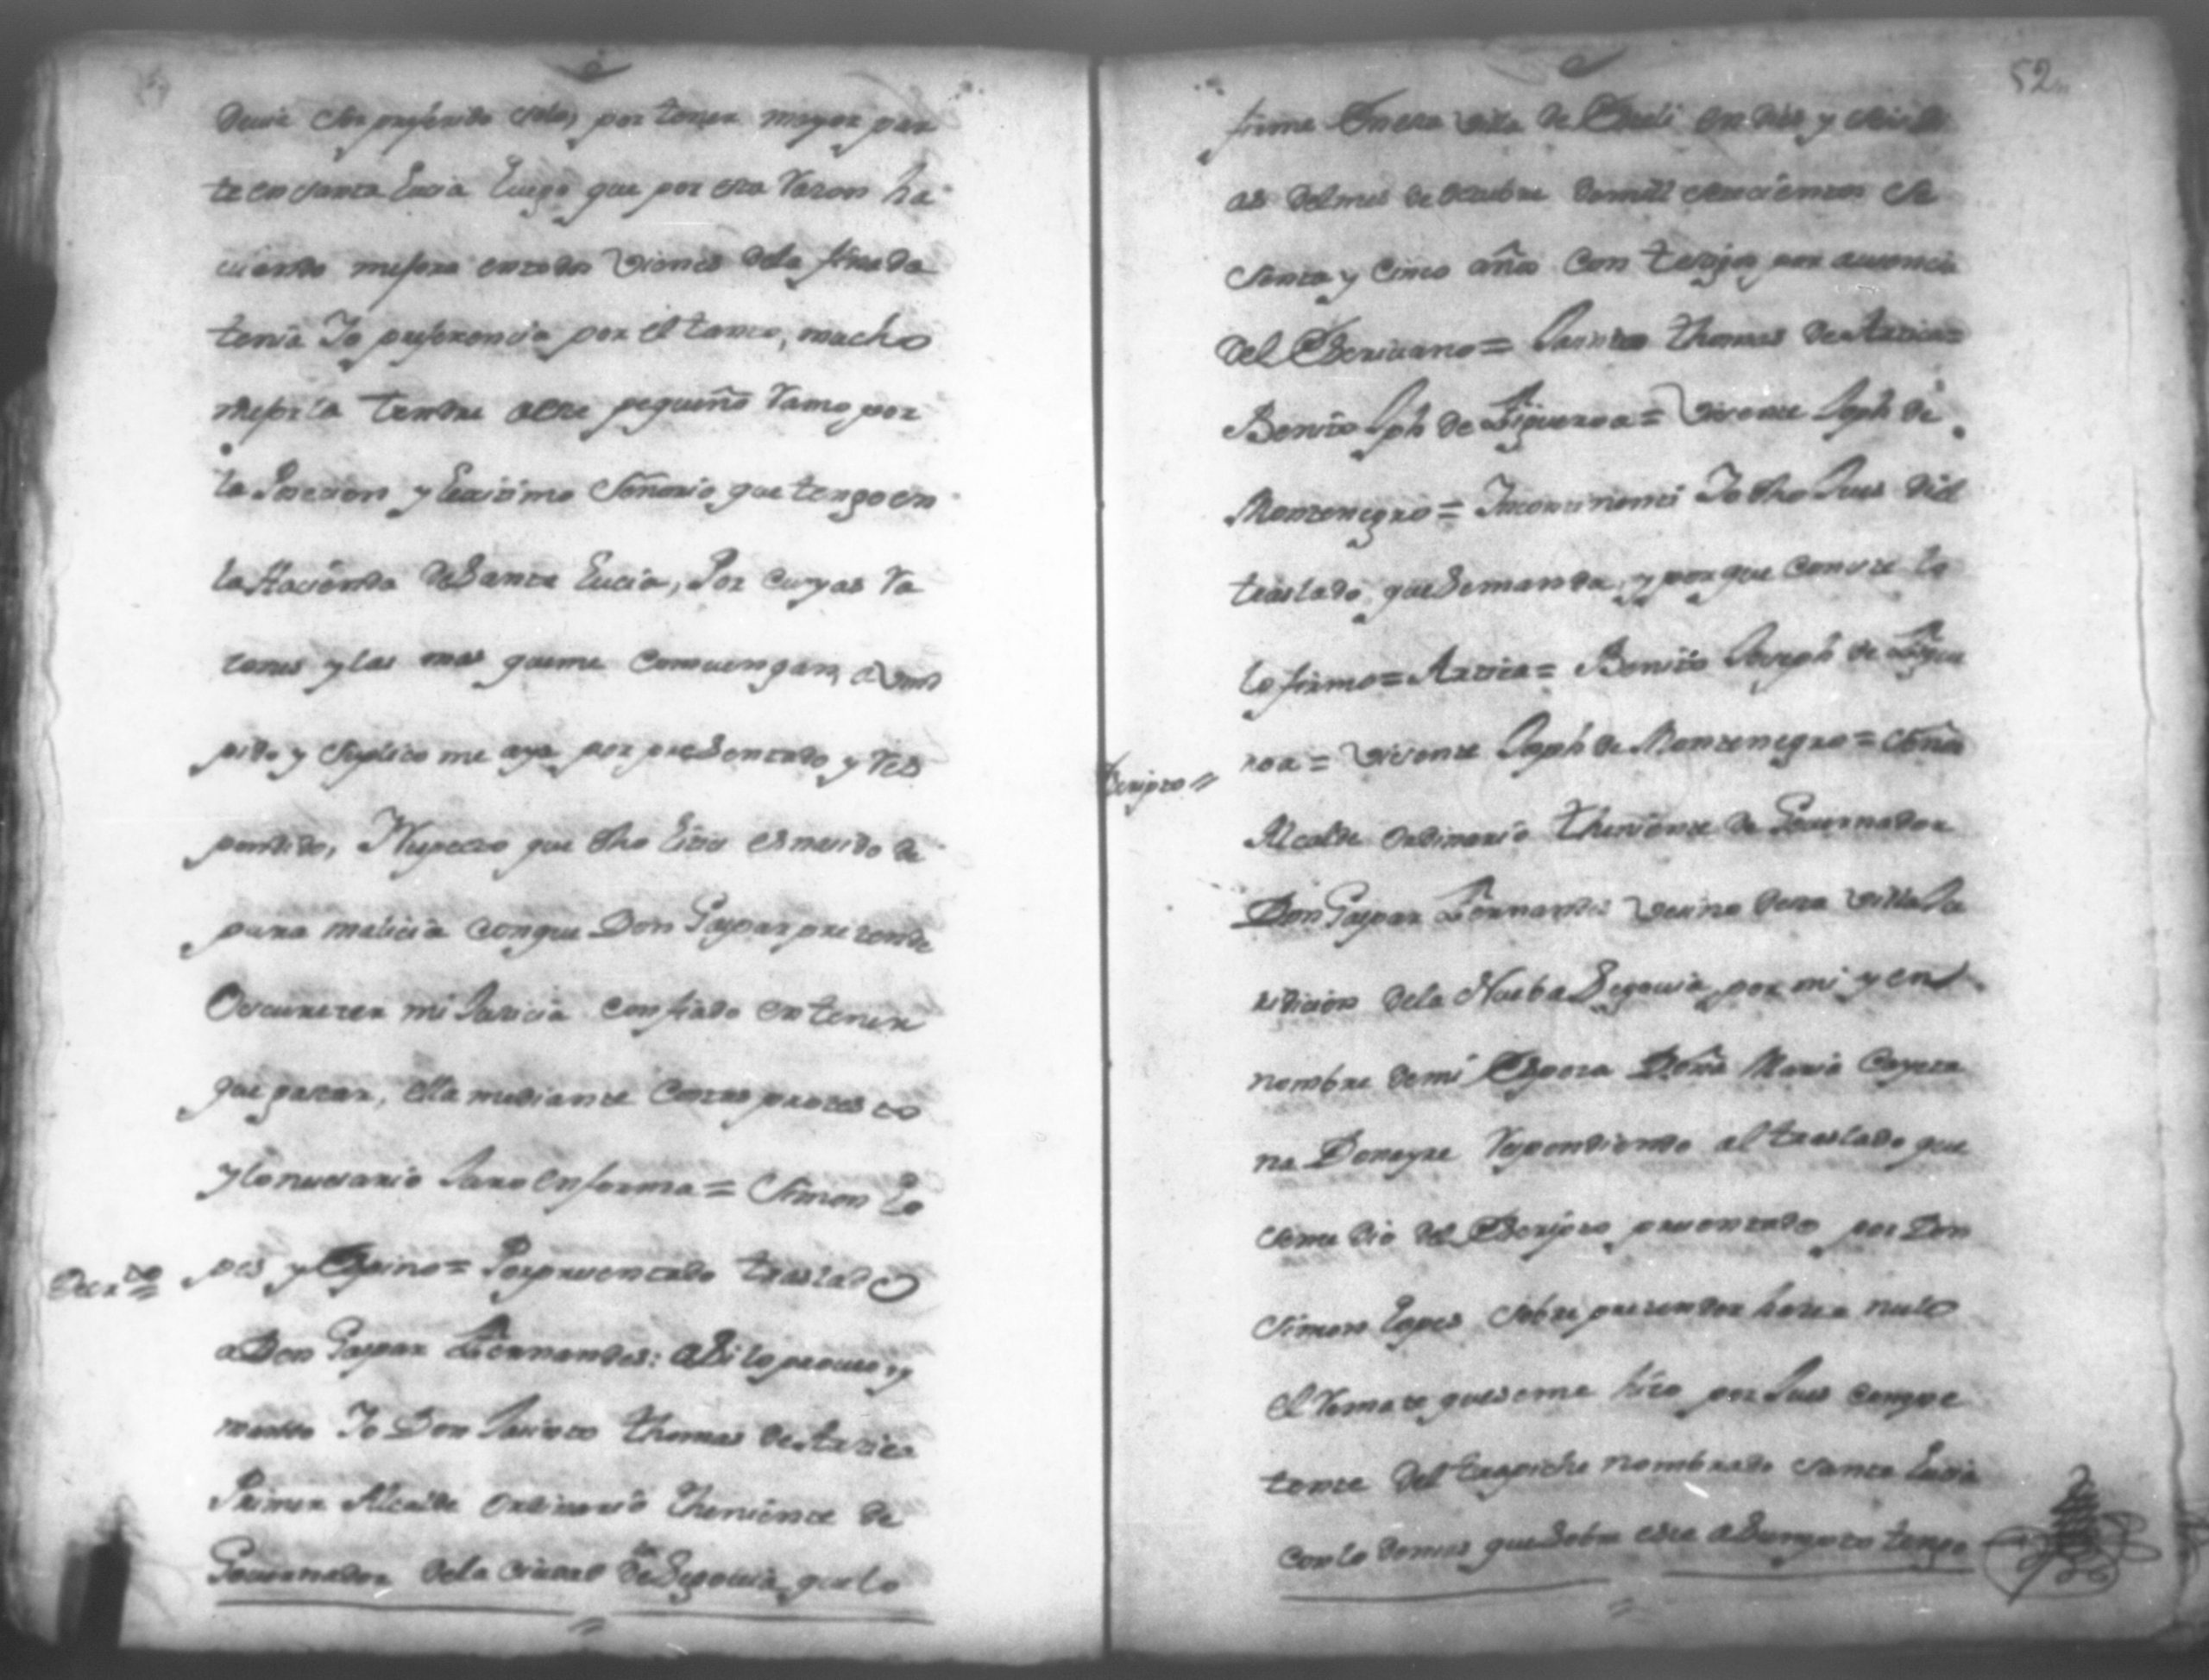 decia ser preferido solo, por tener mayor par
te en santa Lucia Luego que por esta Razon ha
ciendo mejora en todos Vienes dela finada
tenia Yo preferencia por el tanto, mucho
mejor la tendre a este pequeño Ramo por
la Posecion y lexitimo Señorio que tengo en
la Hacienda de Santa Lucia, Por cuyas Ra
zones y las mas que me convengan, a Vmd
pido y suplico me aya por presentado y Res
pondido, Respecto que dho Litis es nasido de
pura malicia conque Don Gaspar pretende
Oscurezer mi Justicia confiado en tener
que gastar, ella mediante Costas protesto
y lo nesesario Juro en forma = Simon Lo
Decrto = pes y Espino = Por presentado traslado
a Don Gaspar Fernandes: asi lo proveo y
mando Yo Don Jasinto Thomas de Arzica
Primer Alcalde ordinario Theniente de
Governador dela ciudad de Segovia que lo
52
firme En esta Villa de Esteli en dies y seis di
as del mes de octubre de mill setecientos se
senta y Cinco años Con testigos por ausencia
del Escrivano = Jasinto Thomas de Arzica =
Benito Jph de Figueroa = Visente Joph de
Montenegro = Yncontinenti Yo dho Jues di el
traslado que se manda, y por que Conste lo
lo firmo = Arzica = Benito Joseph de Figue
Escripto = roa = Visente Joph de Montenegro = Señor
Alcalde ordinario Theniente de Governador
Don Gaspar Fernandes Vesino desta Villa Ju
ridicion dela Nueba Segovia, por mi y en
nombre de mi Esposa Doña Maria Cayeta
na Donayre Respondiendo al traslado que
se me dio del Escripto presentado por Don
Simon Lopes sobre pretender hazer nulo
el Remate que se me hizo por Jues compe
tente del trapiche nombrado santa Lusia
con lo demas que sobre este asumpto tengo